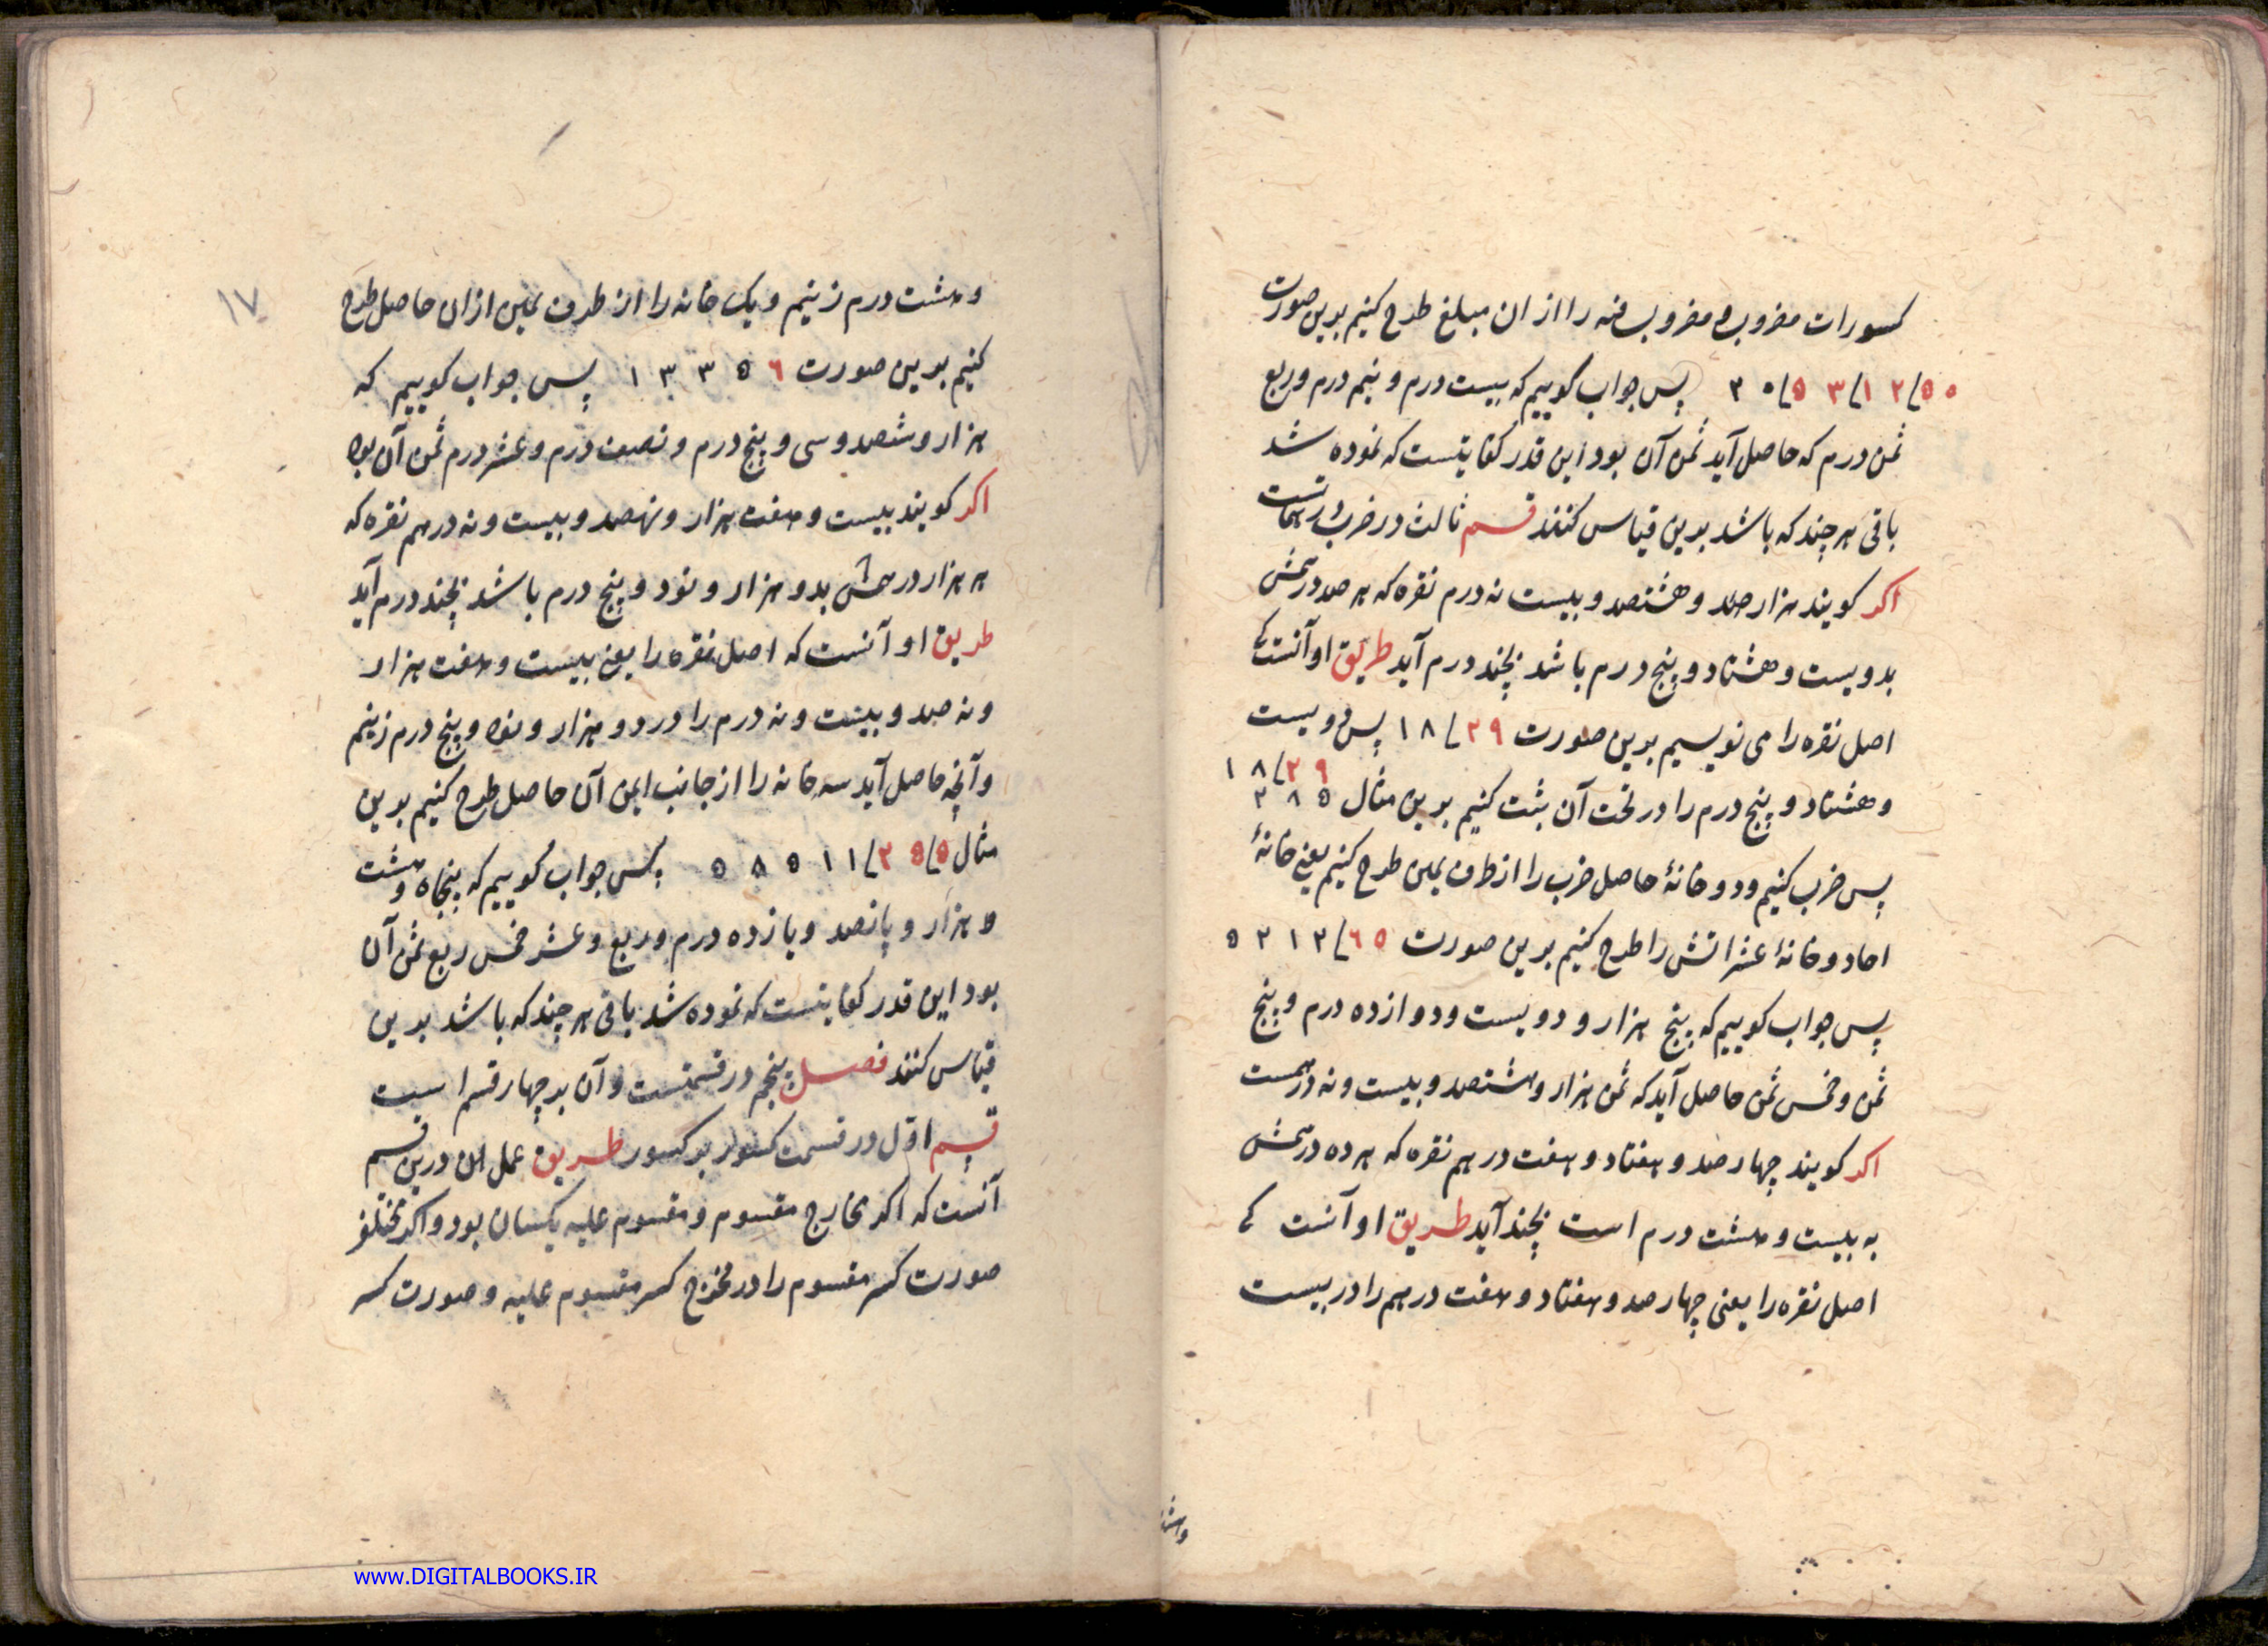 کسورات مضروب و مضروب فیه را از ان مبلغ طرح کنیم بدین صورت
پس جواب کوییم که بیست درم و نیم درم و ربع
ثمن درم که حاصل آید ثمن آن بود این قدر کفایتست که نموده شد
باقی هر چند که باشد بدین قیاس کنند قسم ثالث در ضرب
اکر کویند هزار و هشتصد و بیست نه درم نقره که هر صد درمش
بدویست و هشتاد و پنج درم باشد بچند درم آید طریق او آنست که
اصل نقره را می نویسیم بدین صورت ۲۹ ۱۸ پس دویست
و هشتاد و پنج درم را در تحت آن ثبت کنیم بدین مثال ۱۸ ۲۹ ۲۸۵
پس ضرب کنیم و دو خانهٔ حاصل ضرب را از طرف یمین طرح کنیم یعنی خانهٔ
احاد و خانهٔ عشراتش را طرح کنیم بدین صورت ۵۲۱۲ ٦۵
پس جواب کوییم که پنج هزار و دویست و دوازده درم و پنج
ثمن و خمس ثمن حاصل آید که ثمن هزار و هشتصد و بیست و نه درمست
اکر کویند چهار صد و هفتاد و هفت درهم نقره که هر ده درمش
به بیست و هشت درم است بچند آید طریق او آنست که
اصل نقره را یعنی چهار صد و هفتاد و هفت درهم را در بیست
وهشت
۱۷
و هشت درم زنیم و یک خانه را از طرف یمین از ان حاصل طرح
کنیم بدین صورت ۱۳۳۵٦ پس جواب کوییم که
هزار و سیصد و سی و پنج درم و نصف درم و عشر درم ثمن آن بود
اکر کویند بیست و هفت هزار و نهصد و بیست و نه درهم نقره که
هر هزار درمش بدو هزار و نود و پنج درم باشد بچند درم آید
طریق او آنست که اصل نقره را یعنی بیست و هفت هزار
و نه صد و بیست و نه درم را در دو هزار و نود و پنج درم زنیم
و آنچه حاصل آید سه خانه را از جانب ایمن آن حاصل طرح کنیم بدین
مثال ۵۸۵۱۱ ۲۵۵ پس جواب کوییم که پنجاه و هشت
هزار و پانصد و یازده درم و ربع و عشر خمس ربع ثمن آن
بود این قدر کفایتست که نموده شد باقی هر چند که باشد بدین
قیاس کنند فصل پنجم در قسمتست و آن بر چهار قسم است
قسم اول در قسمت کسور بر کسور طریق عمل ان درین قسم
آنست که اکر مخارج مقسوم و مقسوم علیه یکسان بود و اکر مختلف
صورت کسر مقسوم را در مخرج کسر مقسوم علیه و صورت کسر
www.DIGITALBOOKS.IR